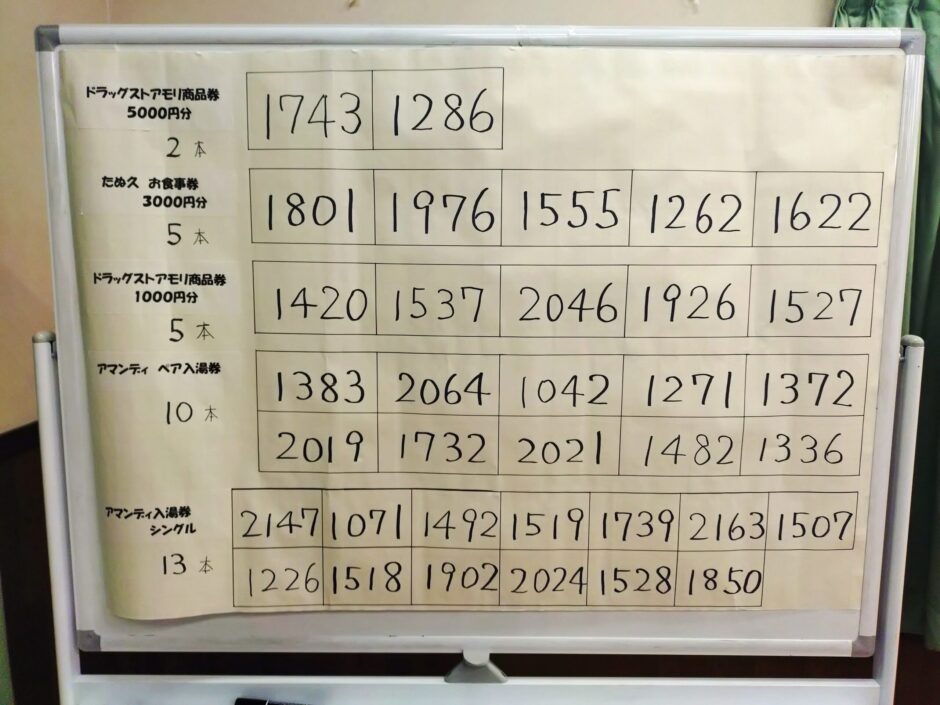 ドラッグストアモリ商品券
5000円分
2本
1743 1286
たぬ久 お食事券
3000円分
5本
1801 1976 1555 1262 1622
ドラッグストアモリ商品券
1000円分
5本
1420 1537 2046 1926 1527
アマンディ ペア入湯券
10本
1383 2064 1042 1271 1372
2019 1732 2021 1482 1336
アマンディ入湯券
シングル
13本
2147 1071 1492 1519 1739 2163 1507
1226 1518 1902 2024 1528 1850